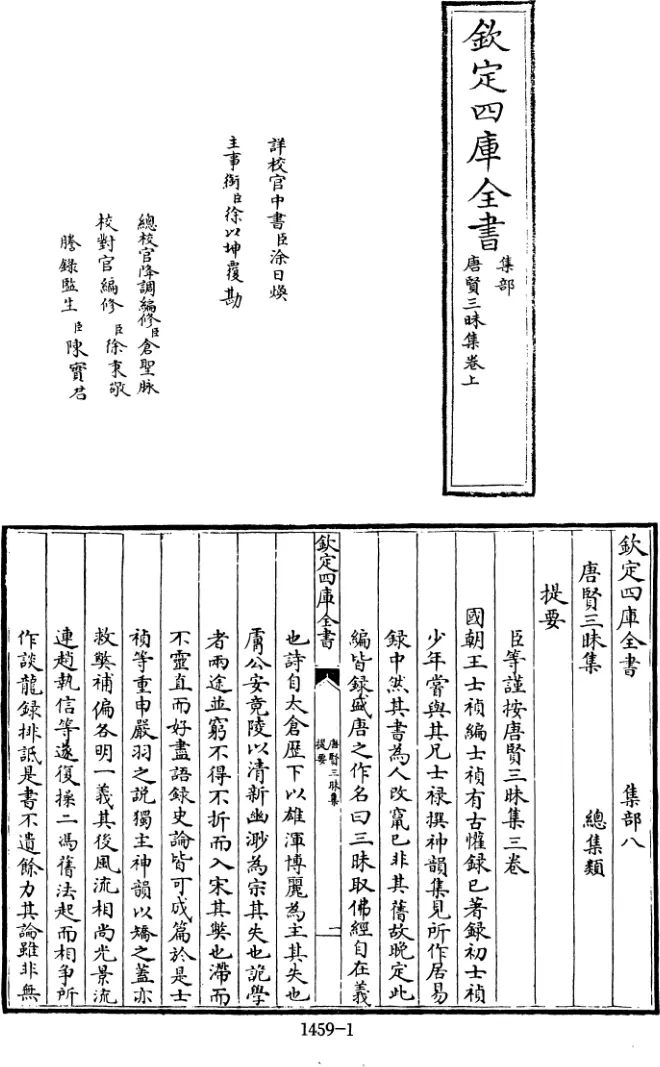 欽定四庫全書
集部
唐賢三昧集卷上
詳校官中書臣涂日煥
主事銜臣徐以坤覆勘
總校官降調編修臣倉聖脉
校對官編修臣徐秉敬
謄錄監生臣陳寶君
欽定四庫全書 集部八
唐賢三昧集 總集類
提要
臣等謹按唐賢三昧集三卷
國朝王士禎編士禎有古懽録已著録初士禎
少年嘗與其兄士禄撰神韻集見所作居易
録中然其書為人改竄已非其舊故晚定此
編皆録盛唐之作名曰三昧取佛經自在義
欽定四庫全書
唐賢三昧集
提要
一
也詩自太倉歴下以雄渾博麗為主其失也
膚公安竟陵以清新幽渺為宗其失也詭學
者兩途並窮不得不折而入宋其弊也滯而
不靈直而好盡語録史論皆可成篇於是士
禎等重申嚴羽之説獨主神韻以矯之蓋亦
救弊補偏各明一義其後風流相尚光景流
連趙執信等遂復操二馮舊法起而相爭所
作談龍録排詆是書不遺餘力其論雖非無
1459-1